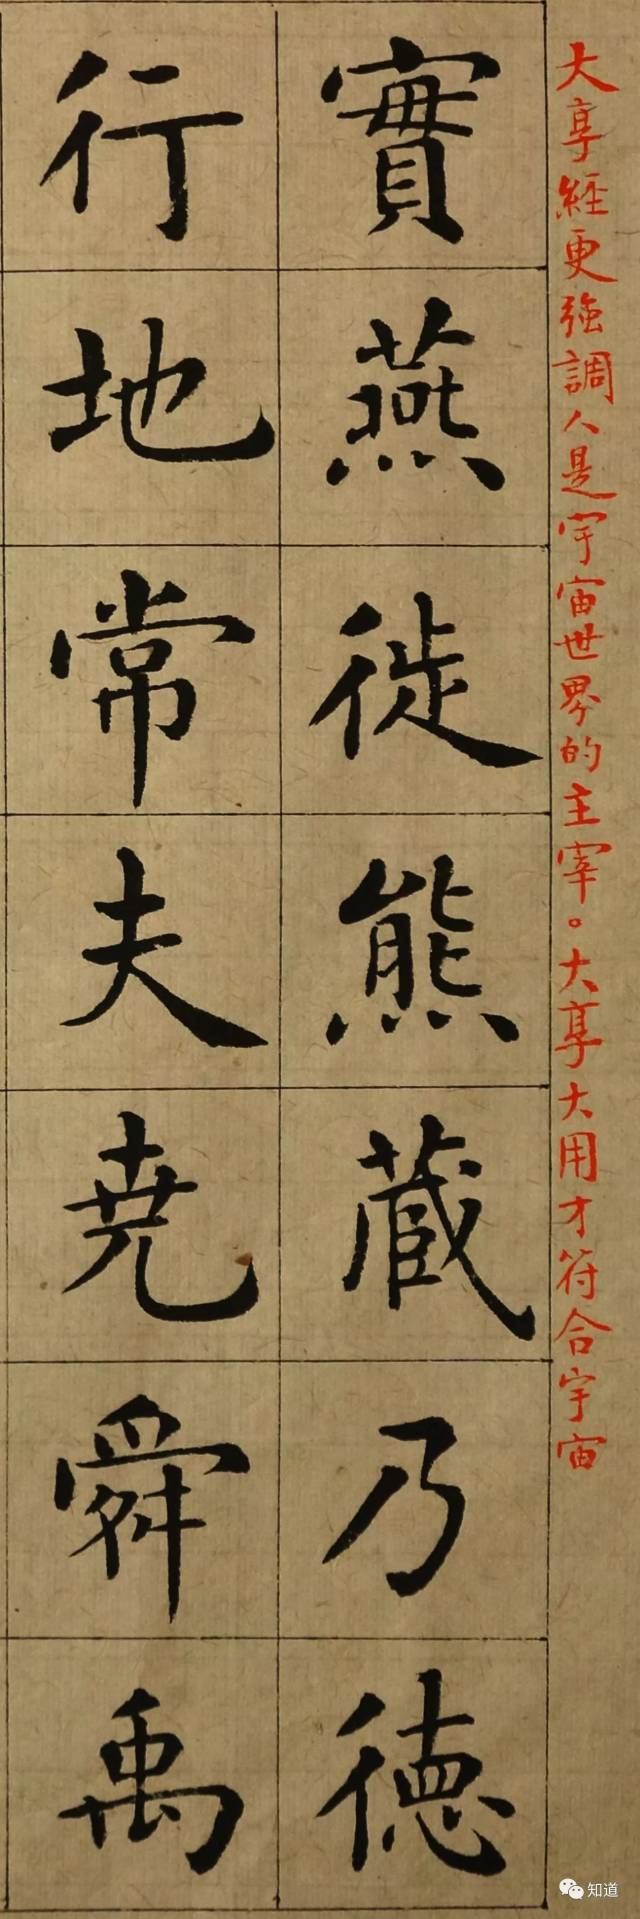 大享經更強調人是宇宙世界的主宰。大享大用才符合宇宙
實燕徙熊蔵乃徳
行地常夫尭舜禹
知道